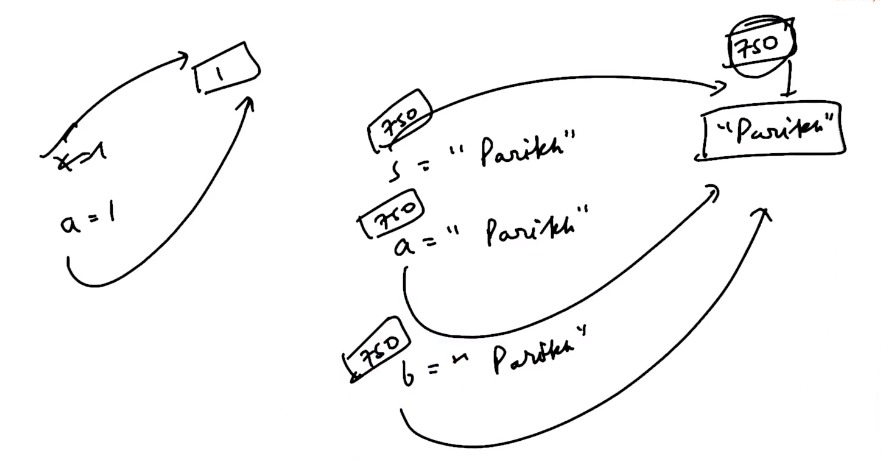 x=1
a = 1
1
750
s = "Parikh"
750
a = "Parikh"
750
b = "Parikh"
750
"Parikh"